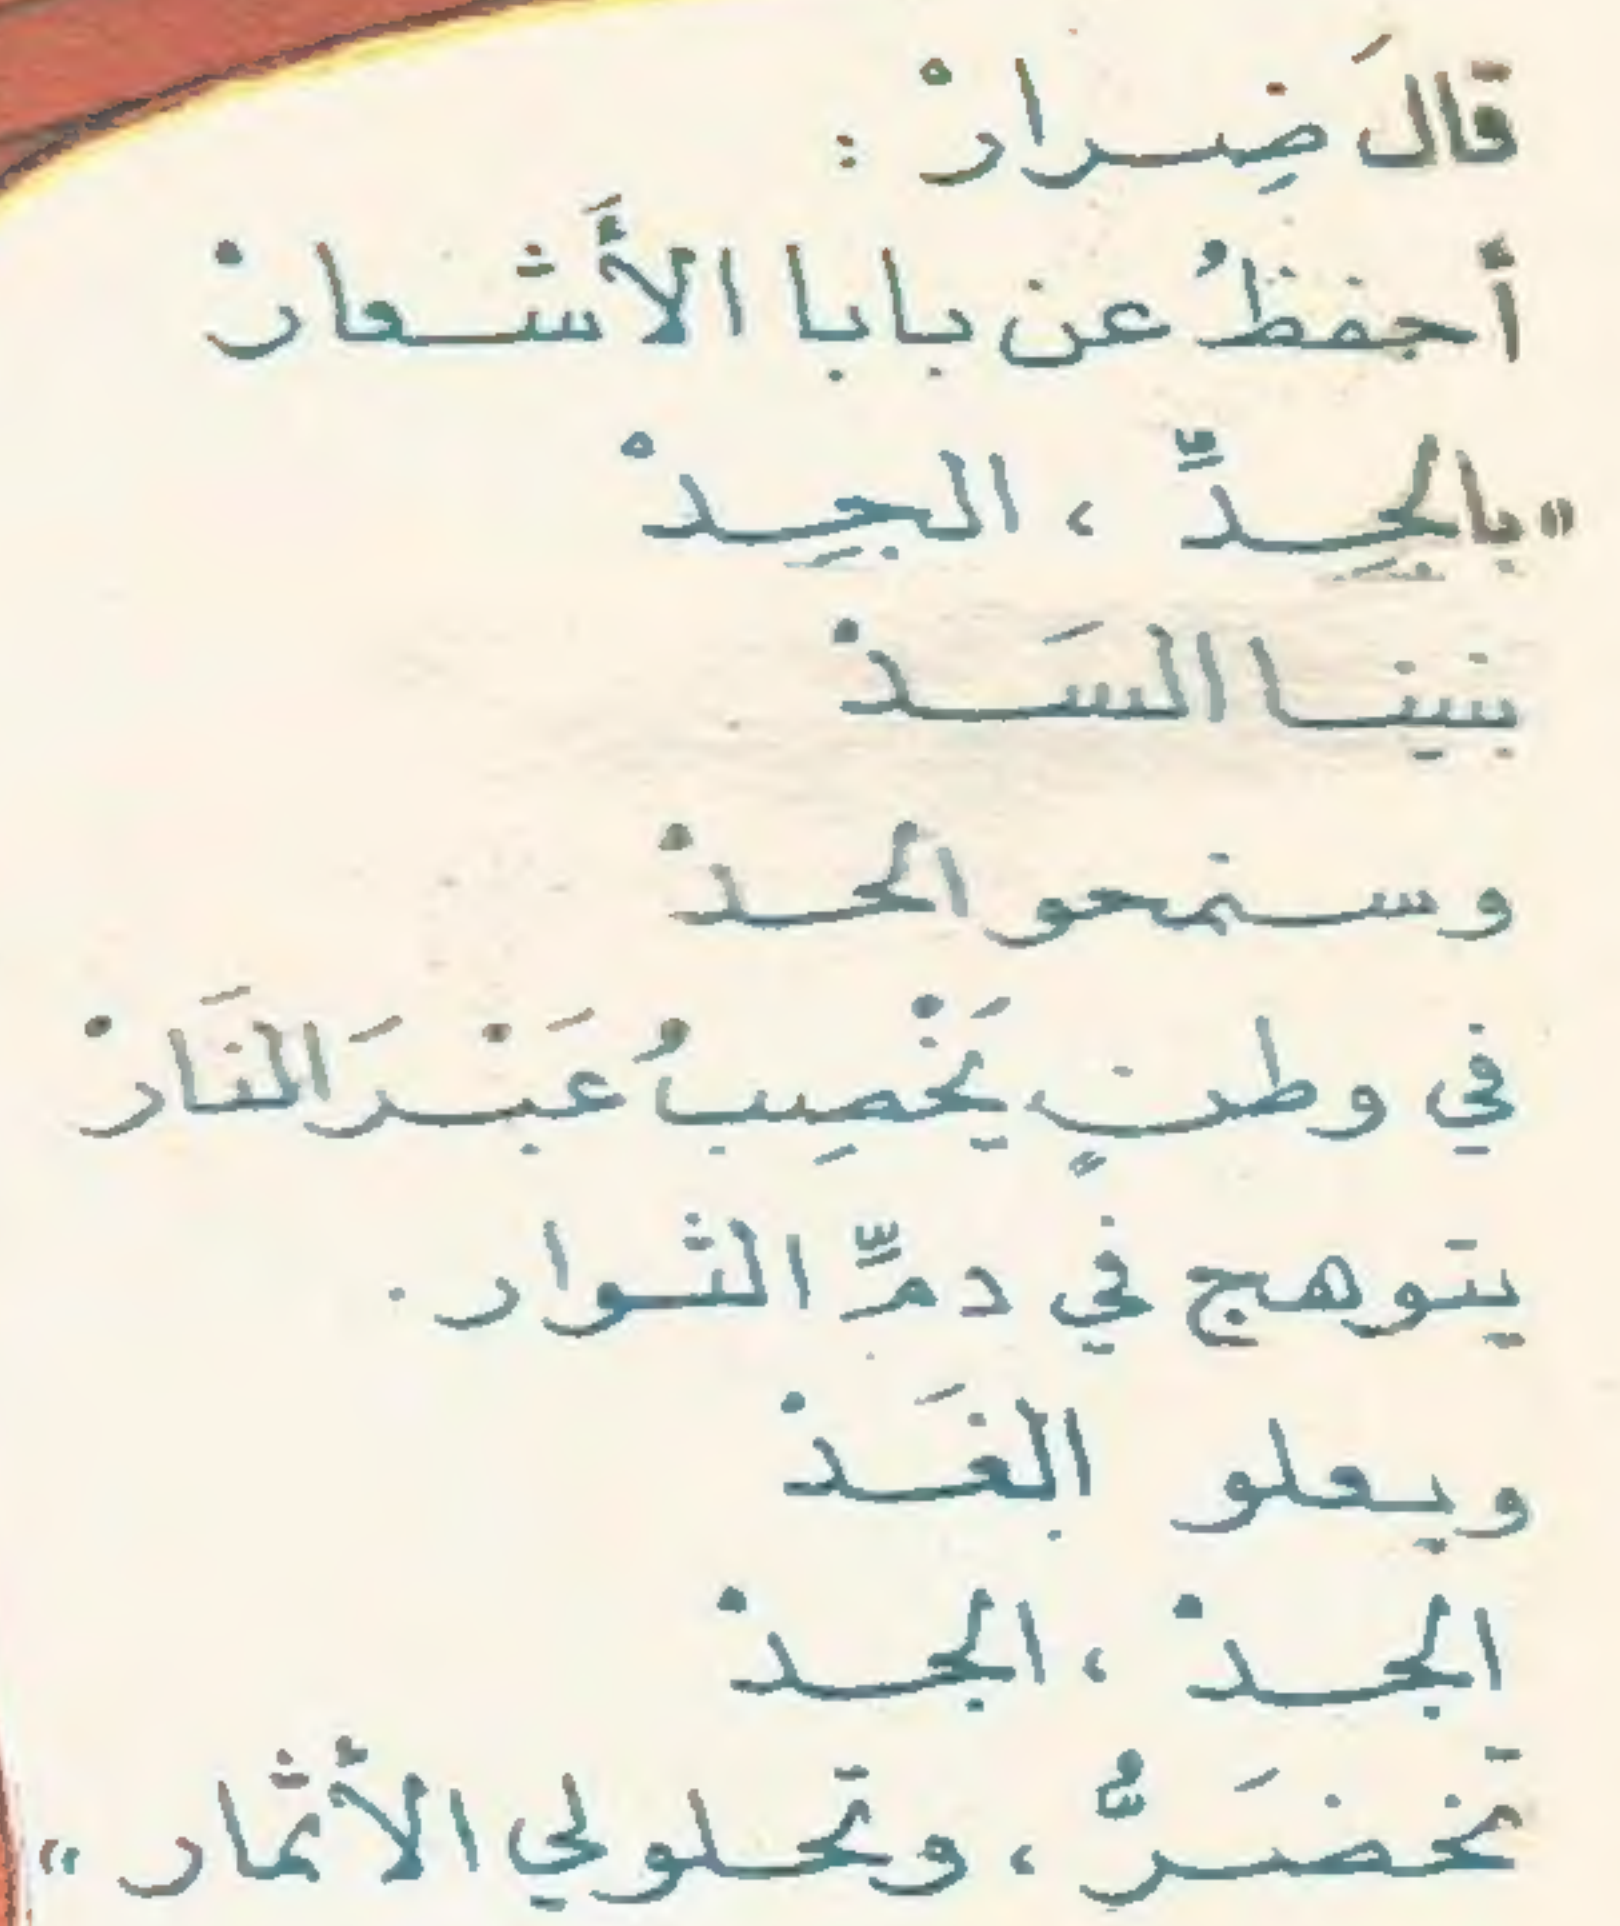 قالَ ضِرارْ :
أحفظُ عن بابا الأَشعارْ
«بالجِدِّ ، الجِدْ
بنينا السَدْ
وسنمحو الحدْ
في وطنٍ يَخْصِبُ عَبْرَ النَارْ
يتوهج في دمِّ الثوار .
ويعلو الغَدْ
المجدْ ، المجدْ
تخضَرُّ ، وتحلولي الأثمار »